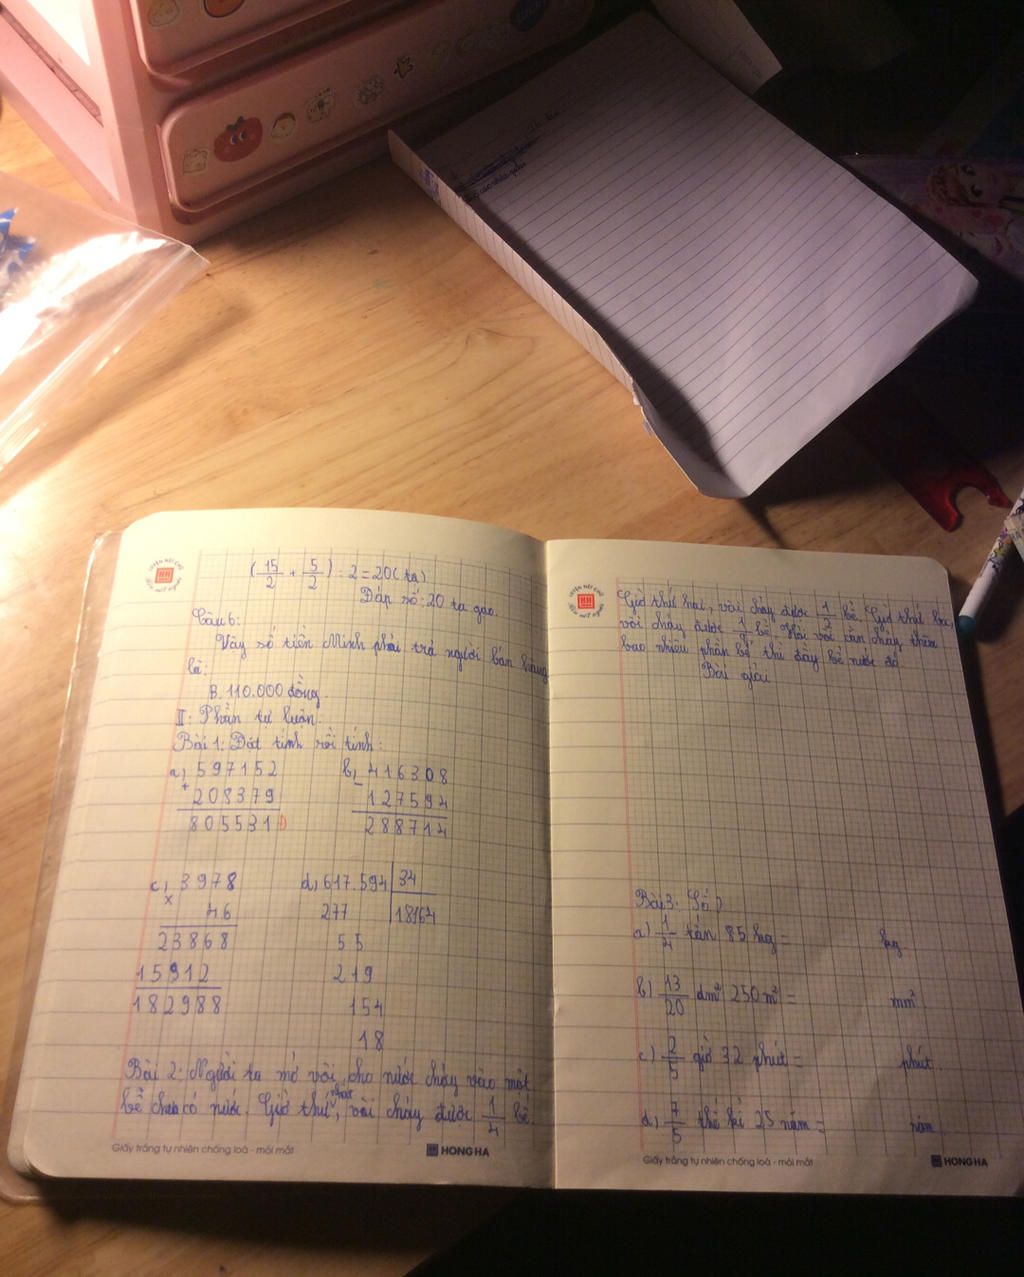 LUYỆN NÉT CHỮ
Rèn nết người
HH
(15/2 + 5/2) : 2 = 20 (tạ)
Đáp số: 20 tạ gạo.
Câu 6:
Vậy số tiền Minh phải trả người bán hàng
là:
B. 110.000 đồng.
II: Phần tự luận:
Bài 1: Đặt tính rồi tính:
a, 597152
+
208379
805531
b, 416308
-
127594
288714
c, 3978
x
46
23868
15912
182988
d, 617.594 34
277 18164
55
219
154
18
Bài 2: Người ta mở vòi cho nước chảy vào một
bể chưa có nước. Giờ thứ nhất, vòi chảy được 1/4 bể.
Giấy trắng tự nhiên chống loá - mỏi mắt
HONG HA
LUYỆN NÉT CHỮ
Rèn nết người
HH
Giờ thứ hai, vòi chảy được 1/2 bể. Giờ thứ ba,
vòi chảy được bể. Hỏi vòi cần chảy thêm
bao nhiêu phần bể thì đầy bể nước đó
Bài giải
Bài 3: Số?
a) 1/4 tấn 85 kg = kg
b) 13/20 dm² 250 m² = mm²
c) 2/5 giờ 32 phút = phút.
d, 7/5 thế kỉ 25 năm = năm
Giấy trắng tự nhiên chống loá - mỏi mắt
HONG HA